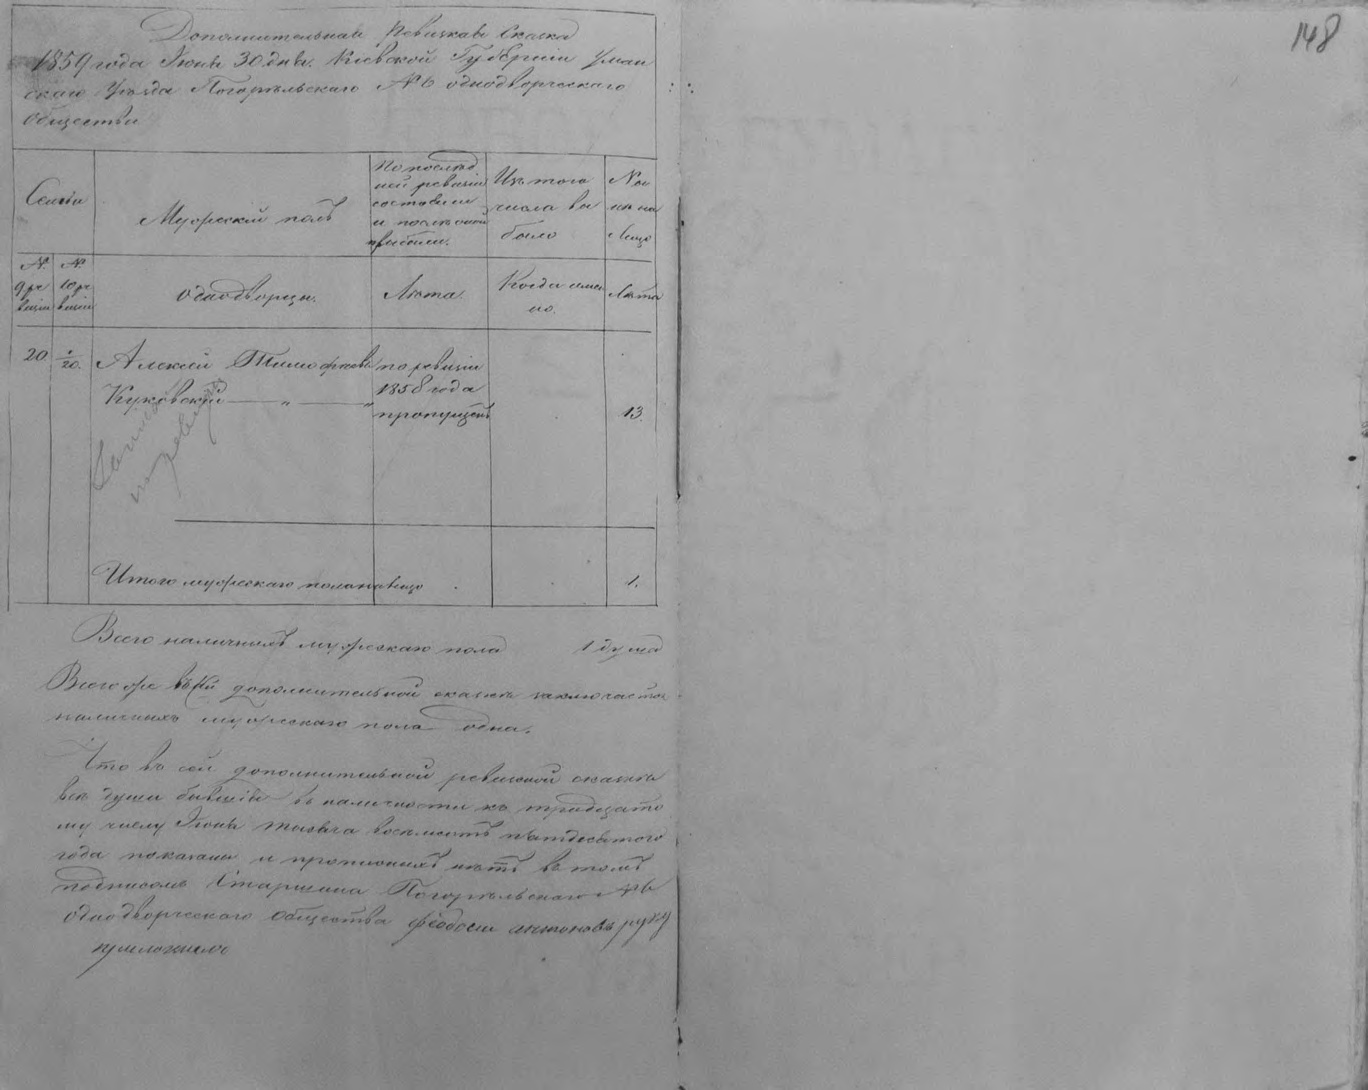 148
Дополнительная Ревизкая Скаска
1859 года Июня 30 дня. Кіевской Губерніи Уман
скаго Уѣзда Погорѣльскаго №6 однодворческаго
общества
Семьи
Мужескій полъ
По послѣд
ней ревизіи
состояли
и послѣ оной
прибыли.
Изъ того
числа вы
было
Ны
нѣ на
лицо
№
9 ре
визіи
№
10 ре
визіи
Однодворцы.
Лѣта.
Когда имен
но.
Лѣта
20.
20.
Алексей Тимофеевъ
Куковскій — „ — „
по ревизіи
1858 года
пропущенъ
13.
Итого мужескаго пола на лицо
1.
Всего наличныхъ мужескаго пола 1 душа
Всего же въ сей дополнительной сказке заключается
наличныхъ мужескаго пола одна.
Что въ сей дополнительной ревизкой сказкѣ
всѣ души бывшіе въ наличности къ тридцато
му числу Іюня тысяча восемьсотъ пятдесятого
года показаны и прописныхъ нѣтъ въ томъ
подписомъ Старшина Погорѣльскаго №6
Однодворческого общества Феодосій Антоновъ руку
приложилъ